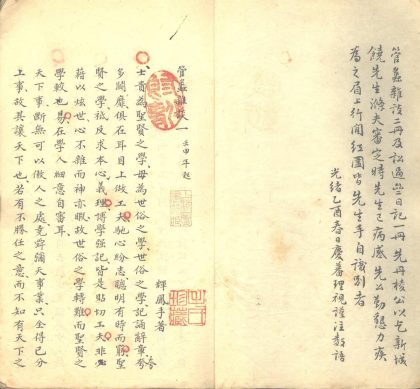 管蠡雜識二冊及訟過齋日記一冊先丹棱公以乞新城
饒先生滌夫審定時先生已病感先公勤懇力疾
為之眉上行間紅圈皆先生手自識別者
光緒乙酉春日慶蕃理視謹注數語
管蠡雜識一 壬申年起
輝鳳手著
士貴為聖賢之學毋為世俗之學世俗之學記誦辭章務
多鬭靡俱在耳目上做工夫馳心紛志聰明有時而窮聖
賢之學祗反求本心義理博學强記皆是貼切工夫非必
藉以炫世心不雜而神亦暇故世俗之學轉難而聖賢之
學較也易在學人細意自審耳
天下事斷無可以做人之處堯舜彌天事業只全得己分
上事故其讓天下也若有不勝任之意而不知有天下之